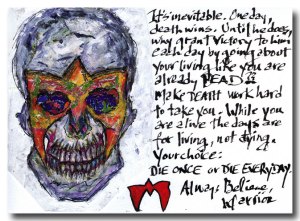 It's inevitable. One day,
death wins. Until he does,
why grant victory to him
each day by going about
your living like you are
already DEAD!!
MAKE DEATH work hard
to take you. While you
are alive the days are
for living, not dying.
Your choice:
DIE ONCE OR DIE EVERYDAY.
Always Believe,
Warrior